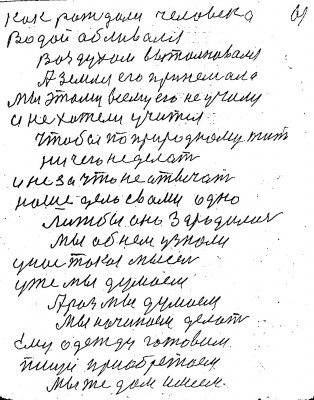 как рождали человека 61
Водой обливался
Воздухом выталковался
А земля его принемала
мы этому всему его не учили
и не хотели учится
чтобы по природному жит
ничего неделат
и не за что не отвечат
наше дело свами одно
лижбы оно Зародилас
мы об нем узнали
у нас такая мысел
уже мы думаем
А раз мы думаем
Мы начинаем делат
ему одежду готовим
пищу приобретаем
Мы же дом имеем.